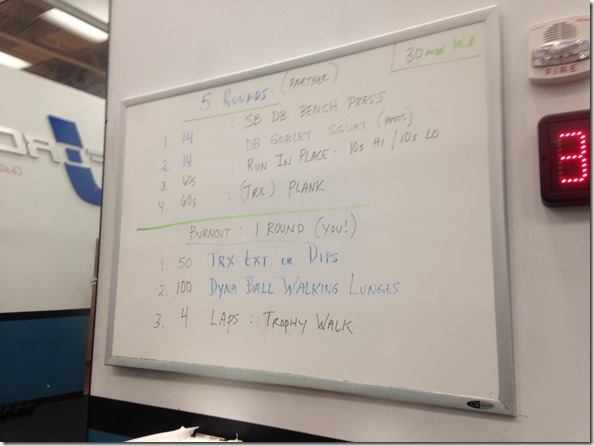 30 min
5 ROUNDS: (PARTNER)
1. 14 : SB DB BENCH PRESS
2. 14 : DB GOBLET SQUAT
3. 60s : RUN IN PLACE: 10s HI / 10s LO
4. 60s : (TRX) PLANK
BURNOUT: 1 ROUND (YOU!)
1. 50 TRX EXT OR DIPS
2. 100 DYNA BALL WALKING LUNGES
3. 4 LAPS : TROPHY WALK
FIRE
3